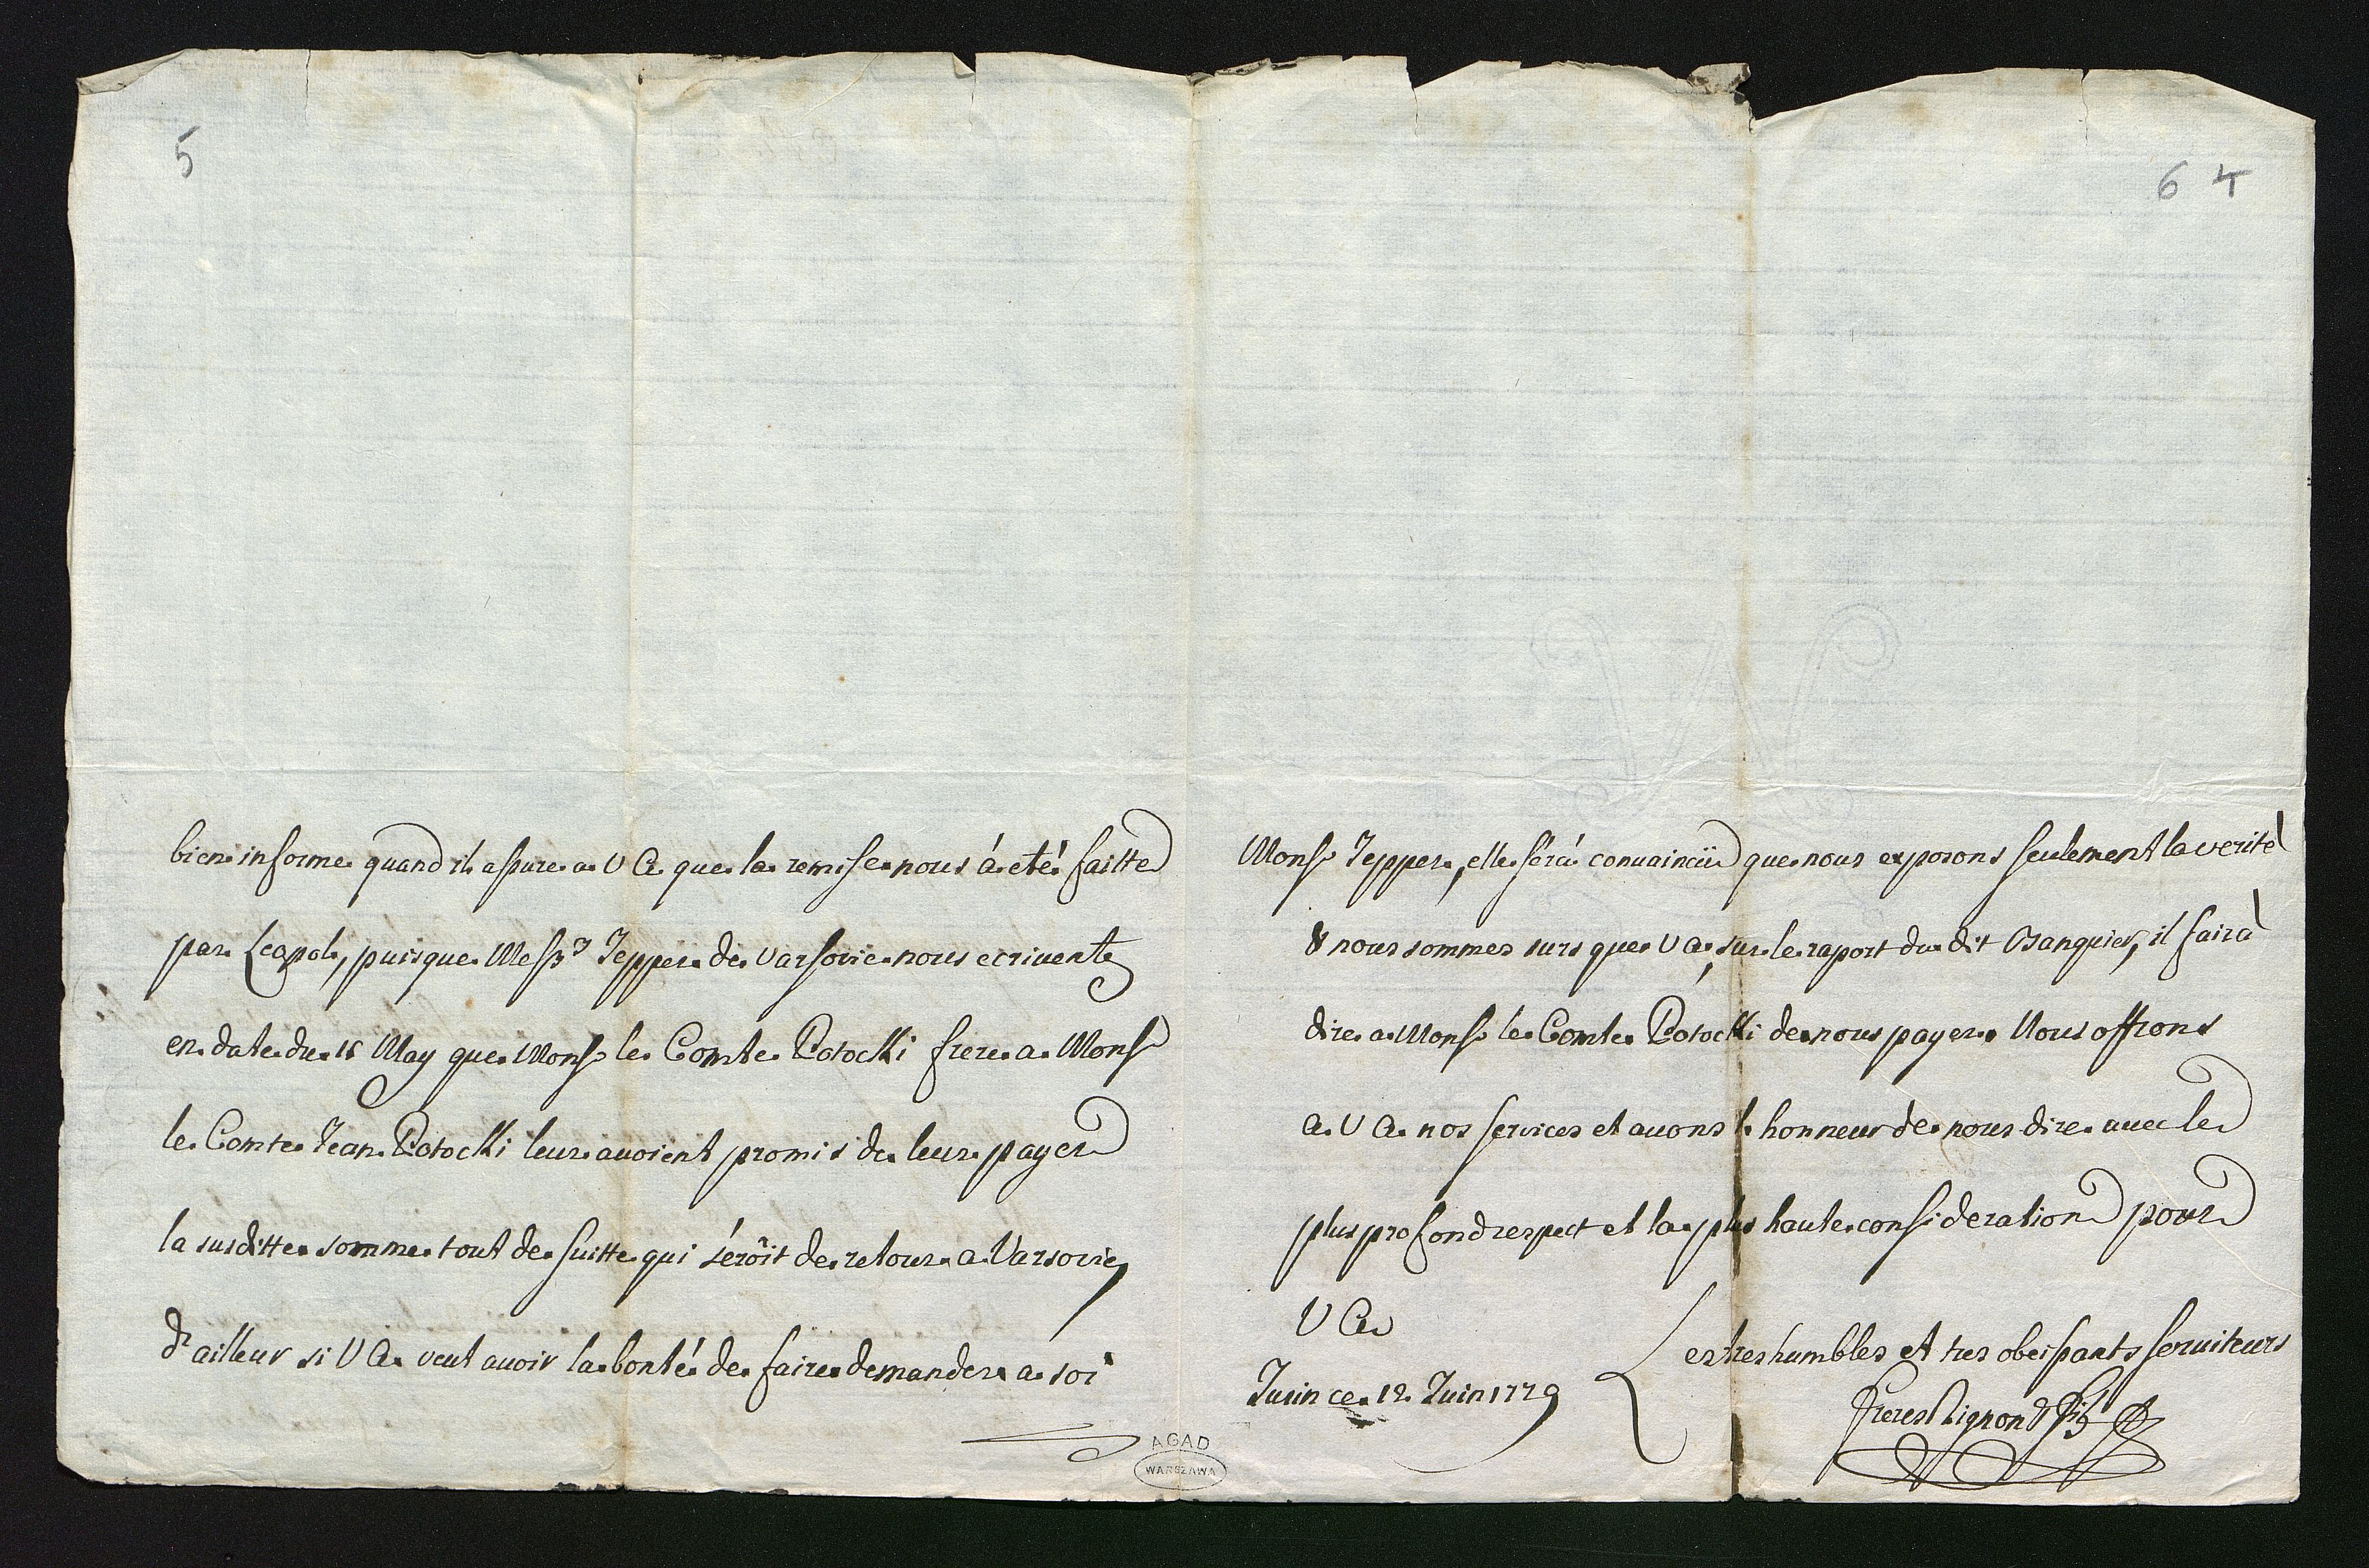 5
bien informe quand il assure a V A que la remise nous à eté faitte
par Leapol, puisque Mess.rs Tepper de Varsovie nous ecrivent
en date du 15 May que Mons.r le Comte Potocki frere a Mons.r
le Comte Jean Potocki leur avoient promis de leur payer
la susditte somme tout de suitte qui séroit de retour a Varsovie,
d'ailleur si V A veut avoir la bonté de faire demander a soi
6 4
Mons.r Tepper, elle sérà convaincüe que nous exposons seulement la verité
& nous sommes surs que V A, sur le raport du dit Banquier, il fairà
dire a Mons.r le Comte Potocki de nous payer. Nous offrons
a V A nos services et avons l'honneur de nous dire avec le
plus profond respect et la plus haute consideration pour
V A
Les tres humbles et tres obeissants serviteurs
Turin ce 12 Juin 1779
Freres Nignon & Fils
AGAD
WARSZAWA